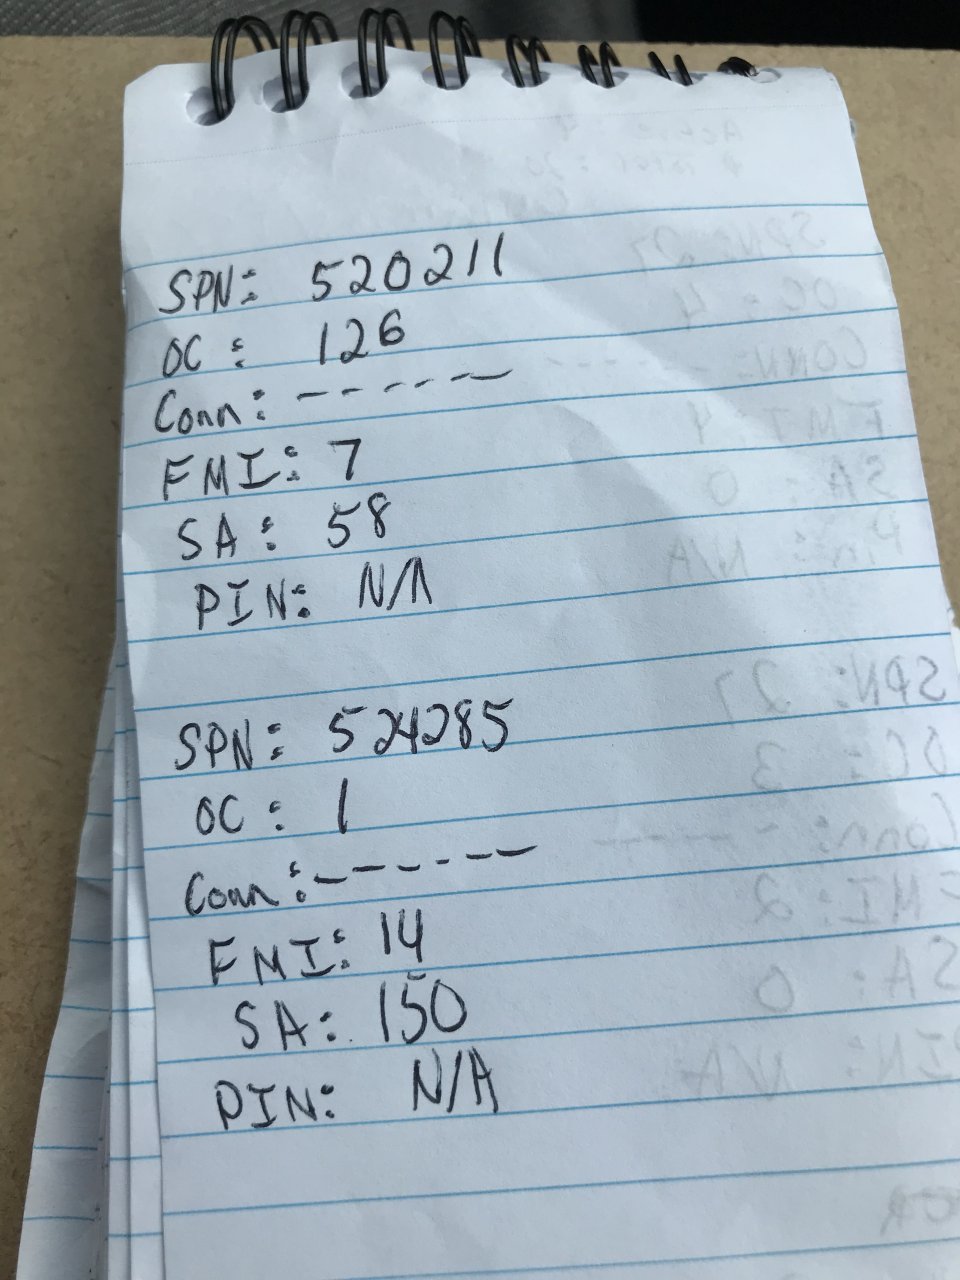 SPN: 520211
OC: 126
Conn: - - - - -
FMI: 7
SA: 58
PIN: N/A
SPN: 524285
OC: 1
Conn: - - - - - -
FMI: 14
SA: 150
PIN: N/A